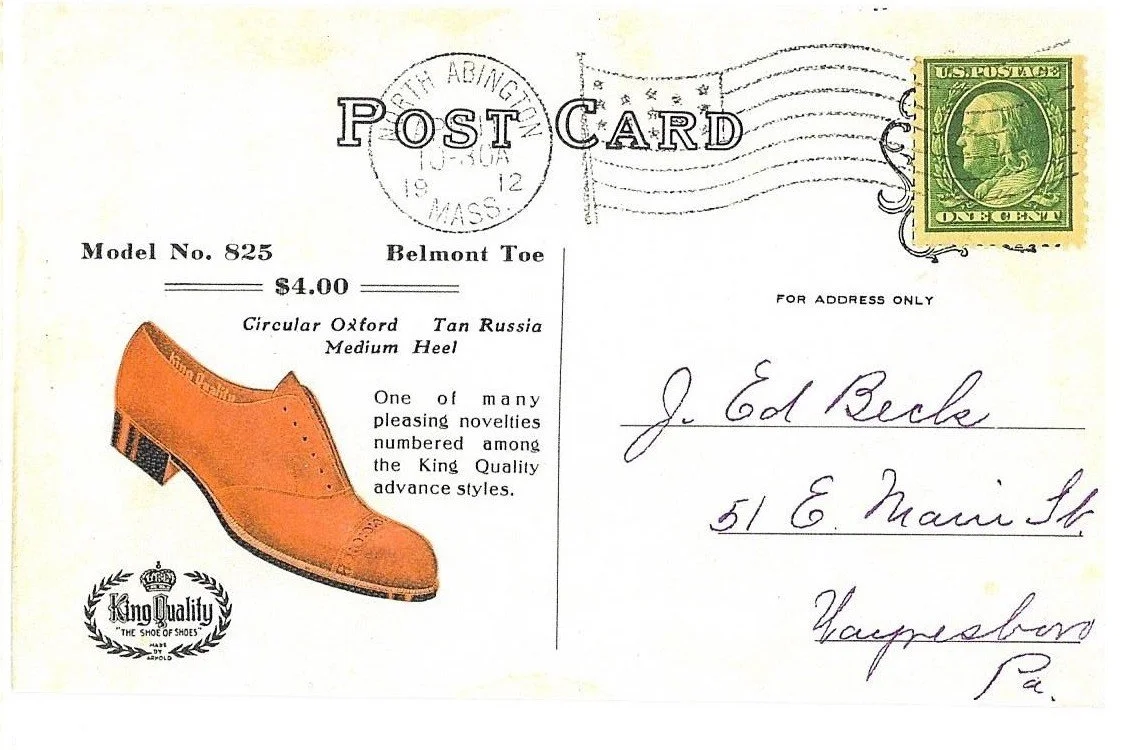 POST CARD
NORTH ABINGTON
10-30A
19 12
MASS.
U.S. POSTAGE
ONE CENT
Model No. 825 Belmont Toe
$4.00
Circular Oxford Tan Russia
Medium Heel
King Quality
One of many
pleasing novelties
numbered among
the King Quality
advance styles.
King Quality
"THE SHOE OF SHOES"
MADE
BY
ARNOLD
FOR ADDRESS ONLY
J. Ed Beck
51 E. Main St.
Waynesboro
Pa.